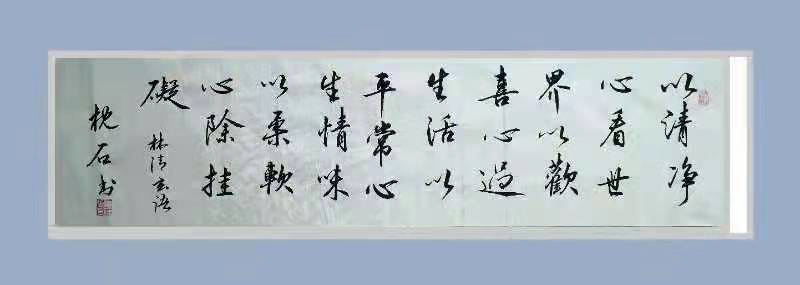 以請净
心看世
界以歡
喜心過
生活以
平常心
生情味
以柔軟
心除挂
礙
林清玄語
枕石书